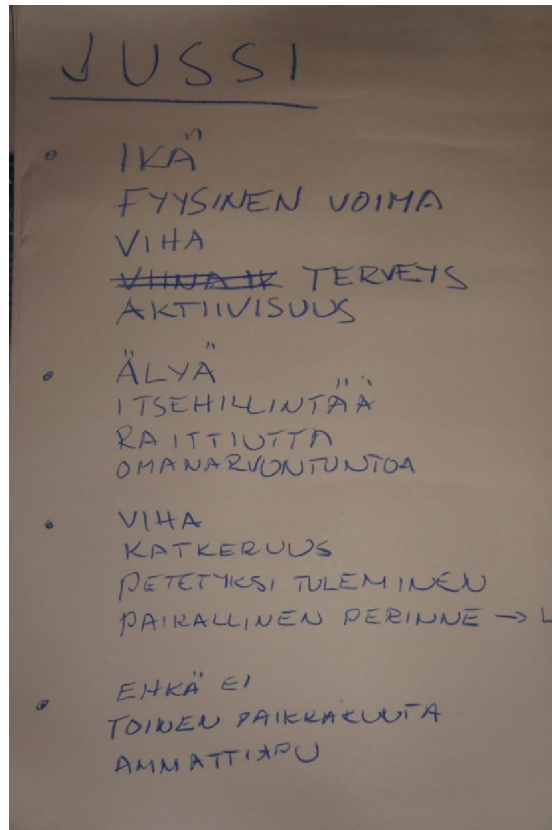 JUSSI
• IKÄ
FYYSINEN VOIMA
VIHA
TERVEYS
AKTIIVISUUS
• ÄLYÄ
ITSEHILLINTÄÄ
RAITTIUTTA
OMANARVONTUNTOA
• VIHA
KATKERUUS
PETETYKSI TULEMINEN
PAIKALLINEN PERINNE →
• EHKÄ EI
TOINEN PAIKKAKUNTA
AMMATTIAPU